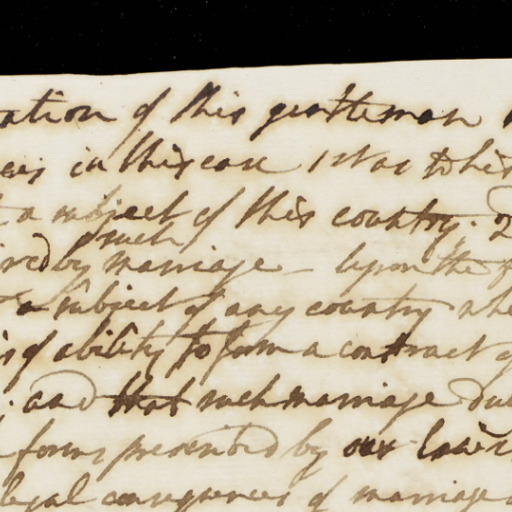 ation of this gentleman
in this case 1st as to his
a subject of this country. 2
such
by marriage - Upon the
a subject of any country whe
of ability to form a contract of
and that such marriage du
forms presented by our laws
legal consequences of marriage